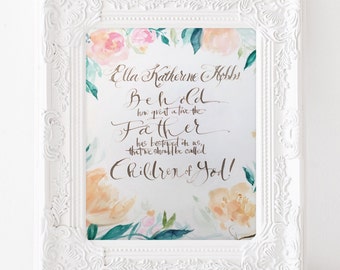 Ella Katherine Hobbs
Behold
how great a love the
Father
has bestowed on us,
that we should be called
Children of God!